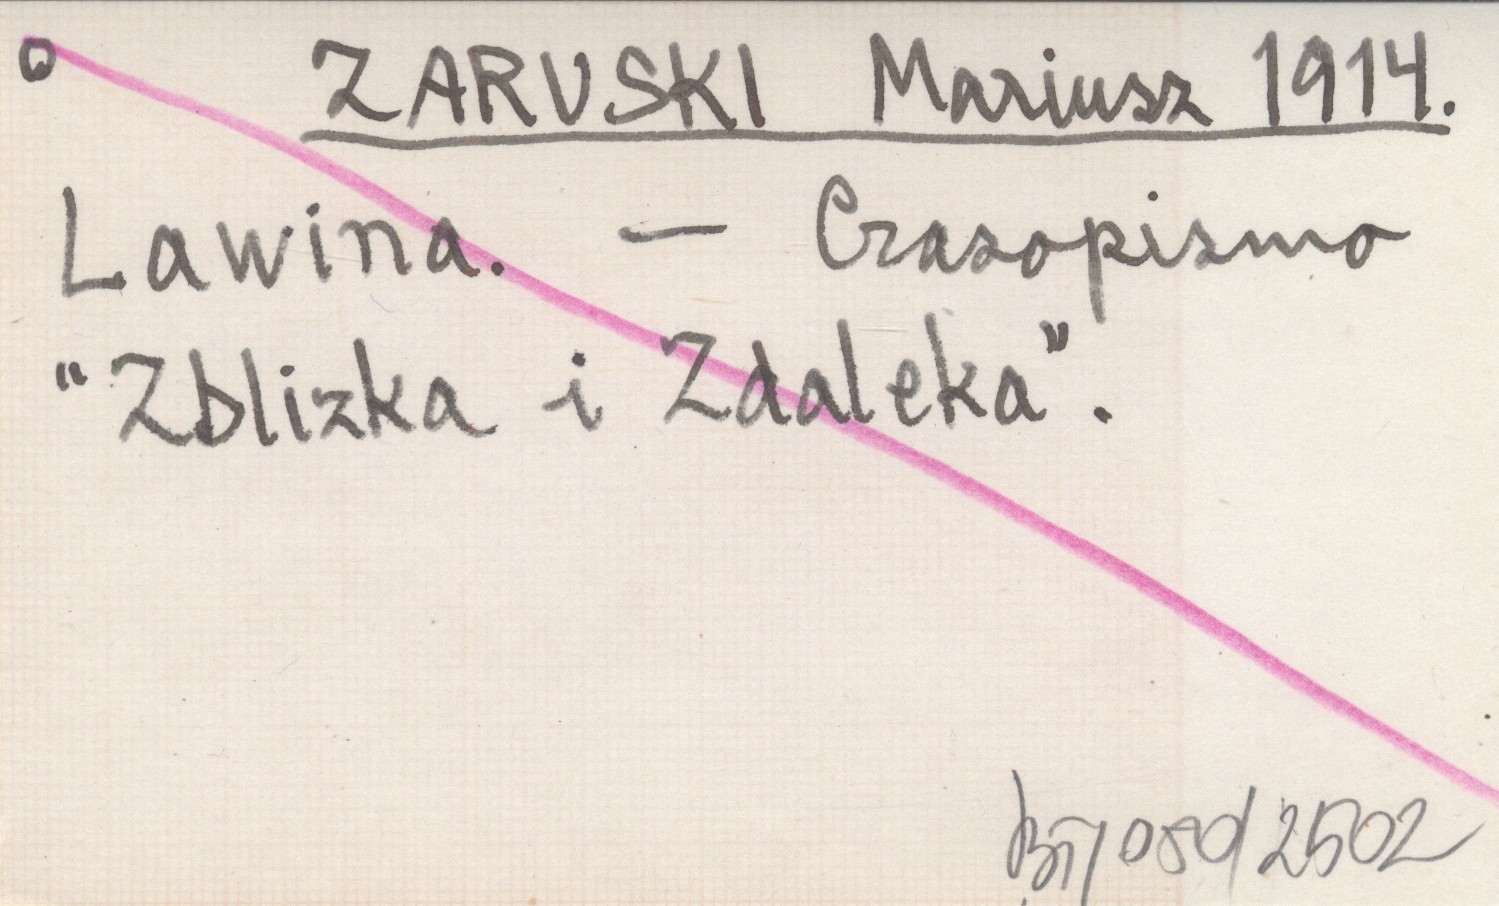 o ZARUSKI Mariusz 1914.
Lawina. — Czasopismo
"Zblizka i Zdaleka".
080/2502